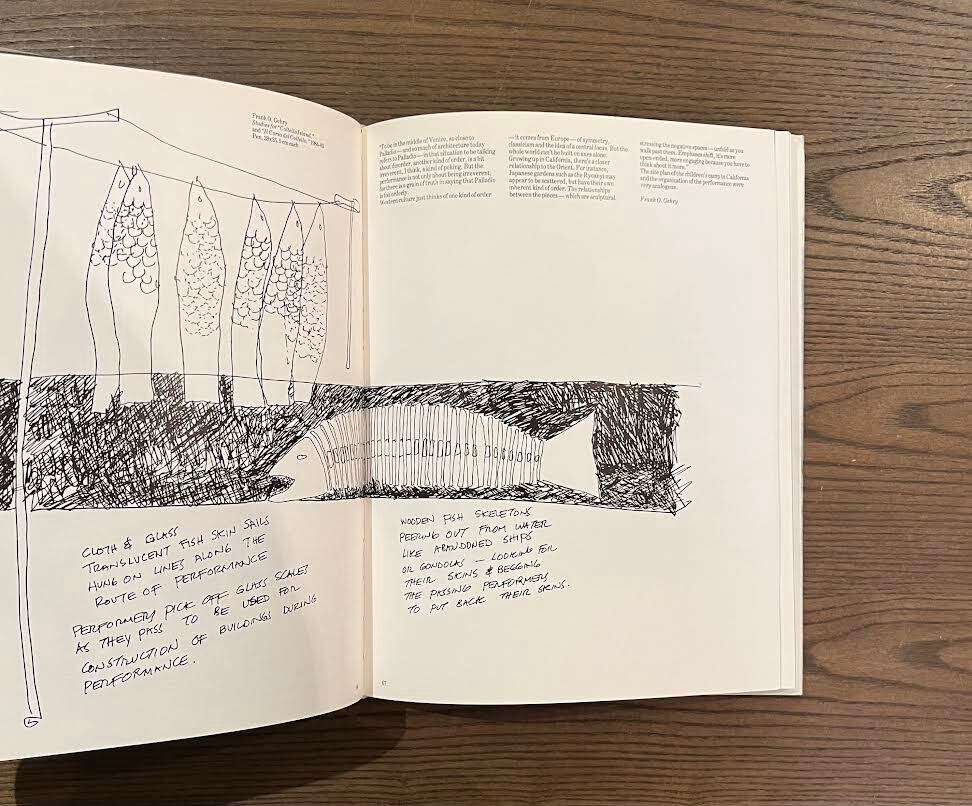 Frank O. Gehry
Studies for "Coltello Island,"
and "Il Corso del Coltello," 1984-85
Pen, 29x35, 5 cm each
"To be in the middle of Venice, so close to
Palladio — and so much of architecture today
refers to Palladio — in that situation to be talking
about disorder, another kind of order, is a bit
irreverent, I think, a kind of poking. But the
performance is not only about being irreverent,
for there is a grain of truth in saying that Palladio
is too orderly.
Western culture just thinks of one kind of order
— it comes from Europe — of symmetry,
classicism and the idea of a central focus. But the
whole world can't be built on axes alone.
Growing up in California, there's a closer
relationship to the Orient. For instance,
Japanese gardens such as the Ryoanji may
appear to be scattered, but have their own
inherent kind of order. The relationships
between the pieces — which are sculptural,
stressing the negative spaces — unfold as you
walk past them. Emphases shift, it's more
open-ended, more engaging because you have to
think about it more.
The site plan of the children's camp in California
and the organization of the performance were
very analogous.
Frank O. Gehry
CLOTH & GLASS
TRANSLUCENT FISH SKIN SAILS
HUNG ON LINES ALONG THE
ROUTE OF PERFORMANCE
PERFORMERS PICK OFF GLASS SCALES
AS THEY PASS TO BE USED FOR
CONSTRUCTION OF BUILDINGS DURING
PERFORMANCE.
WOODEN FISH SKELETONS
PEERING OUT FROM WATER
LIKE ABANDONED SHIPS
OR GONDOLAS — LOOKING FOR
THEIR SKINS & BEGGING
THE PASSING PERFORMERS
TO PUT BACK THEIR SKINS.
57